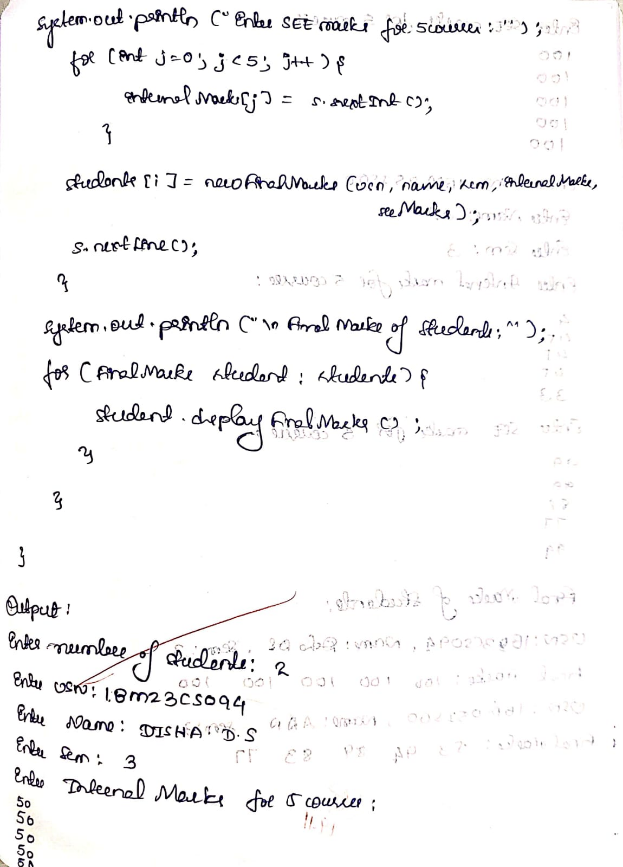 System.out.println ("Enter SEE marks for 5 courses:");
for (int j=0; j<5; j++) {
internal Marks[j] = s.nextInt ();
}
students [i] = new FinalMarks (usn, name, sem, internalMarks,
seeMarks);
s.nextLine();
}
System.out.println ("\n Final Marks of Students:");
for (FinalMarks student : students) {
student.displayFinalMarks ();
}
}
}
Output:
Enter number of students: 2
Enter USN: 1BM23CS094
Enter Name: DISHA D.S
Enter Sem: 3
Enter Internal Marks for 5 courses:
50
50
50
50
50